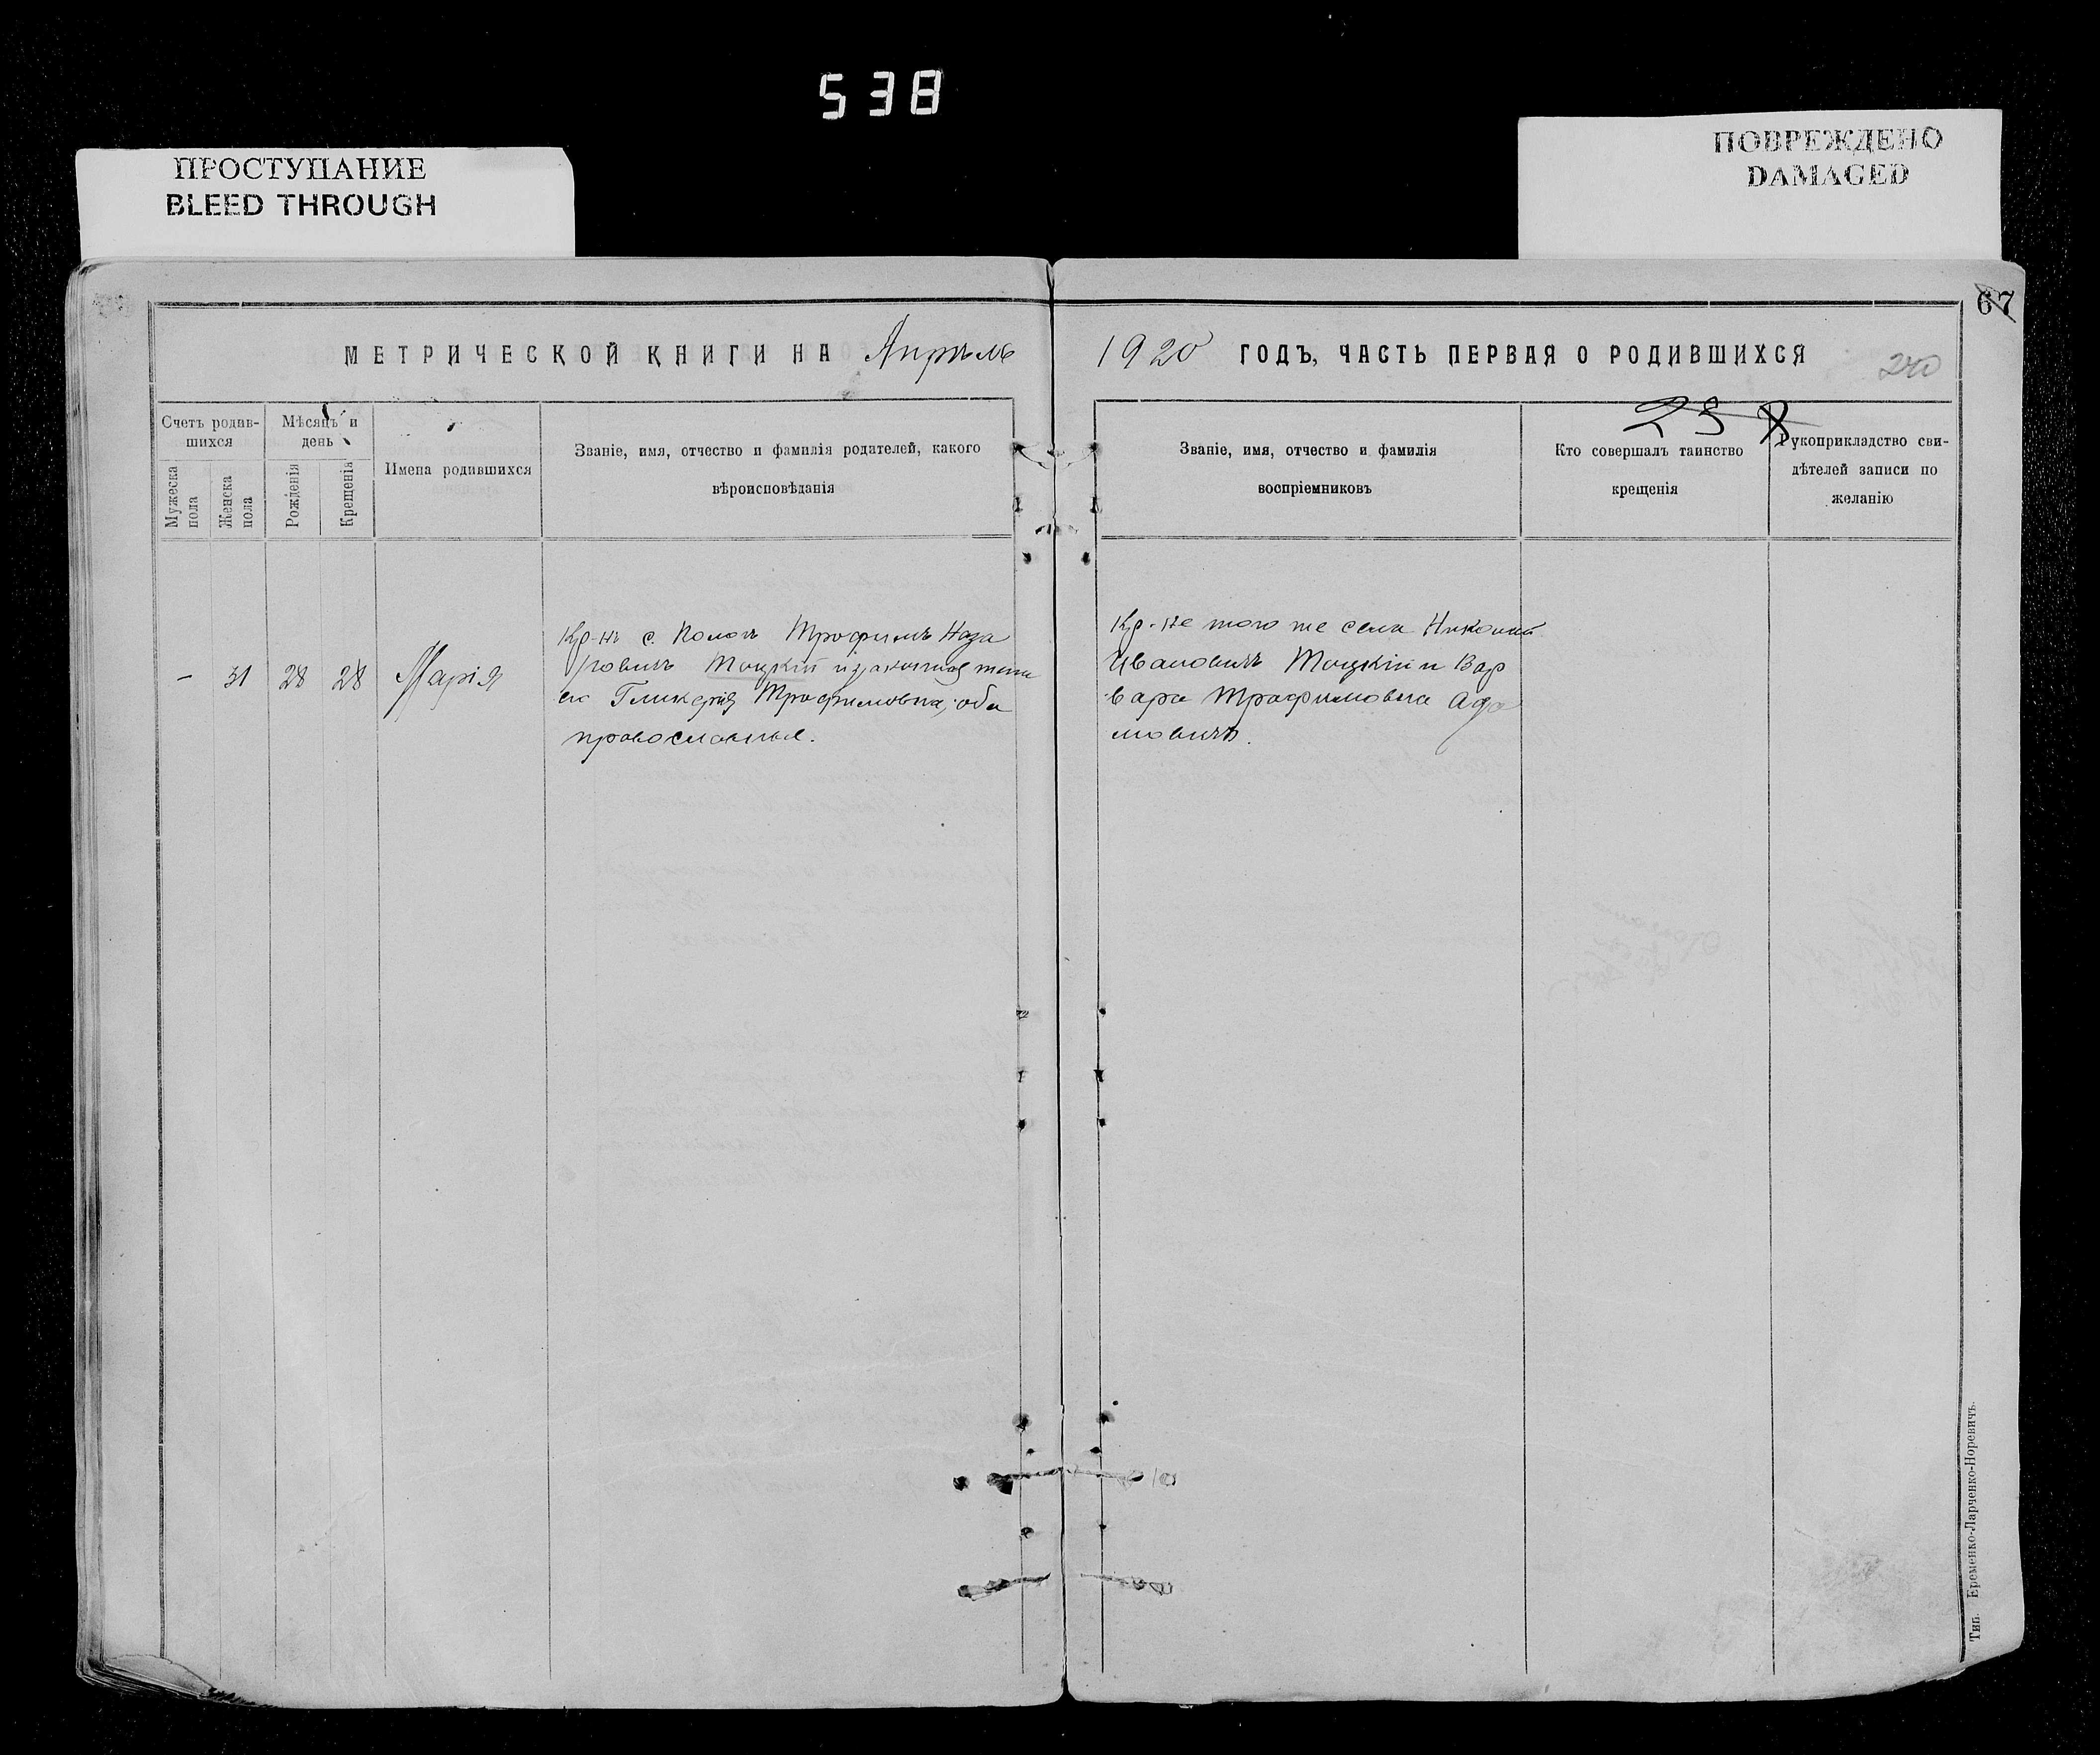 538
ПРОСТУПАНИЕ
BLEED THROUGH
ПОВРЕЖДЕНО
DAMAGED
67
МЕТРИЧЕСКОЙ КНИГИ НА Апрѣль
1920 ГОДЪ, ЧАСТЬ ПЕРВАЯ О РОДИВШИХСЯ
240
Счетъ родив-
шихся
Мужеска
пола
Женска
пола
Мѣсяцъ и
день
Рожденія
Крещенія
Имена родившихся
Званіе, имя, отчество и фамилія родителей, какого
вѣроисповѣданія
Званіе, имя, отчество и фамилія
воспріемниковъ
Кто совершалъ таинство
крещенія
Рукоприкладство сви-
дѣтелей записи по
желанію
- 31 28 28 Марія
Кр-нъ с. Пологъ Трофимъ Наза
ровичъ Тоцкій и законная жена
его Гликерія Трофимовна, оба
православные.
Кр-не того же села Николай
Ивановичъ Тоцкій и Вар
вара Трофимовна Ада
мовичъ.
Тип. Еременко-Ларченко-Норевичъ.